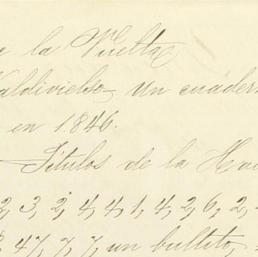 e la Vuelta
Valdivielso Un cuadern
en 1846.
— Titulos de la Hac
2, 3, 2, 4, 4, 1, 4, 2, 6, 2,
47, 7, 7, un bultito,